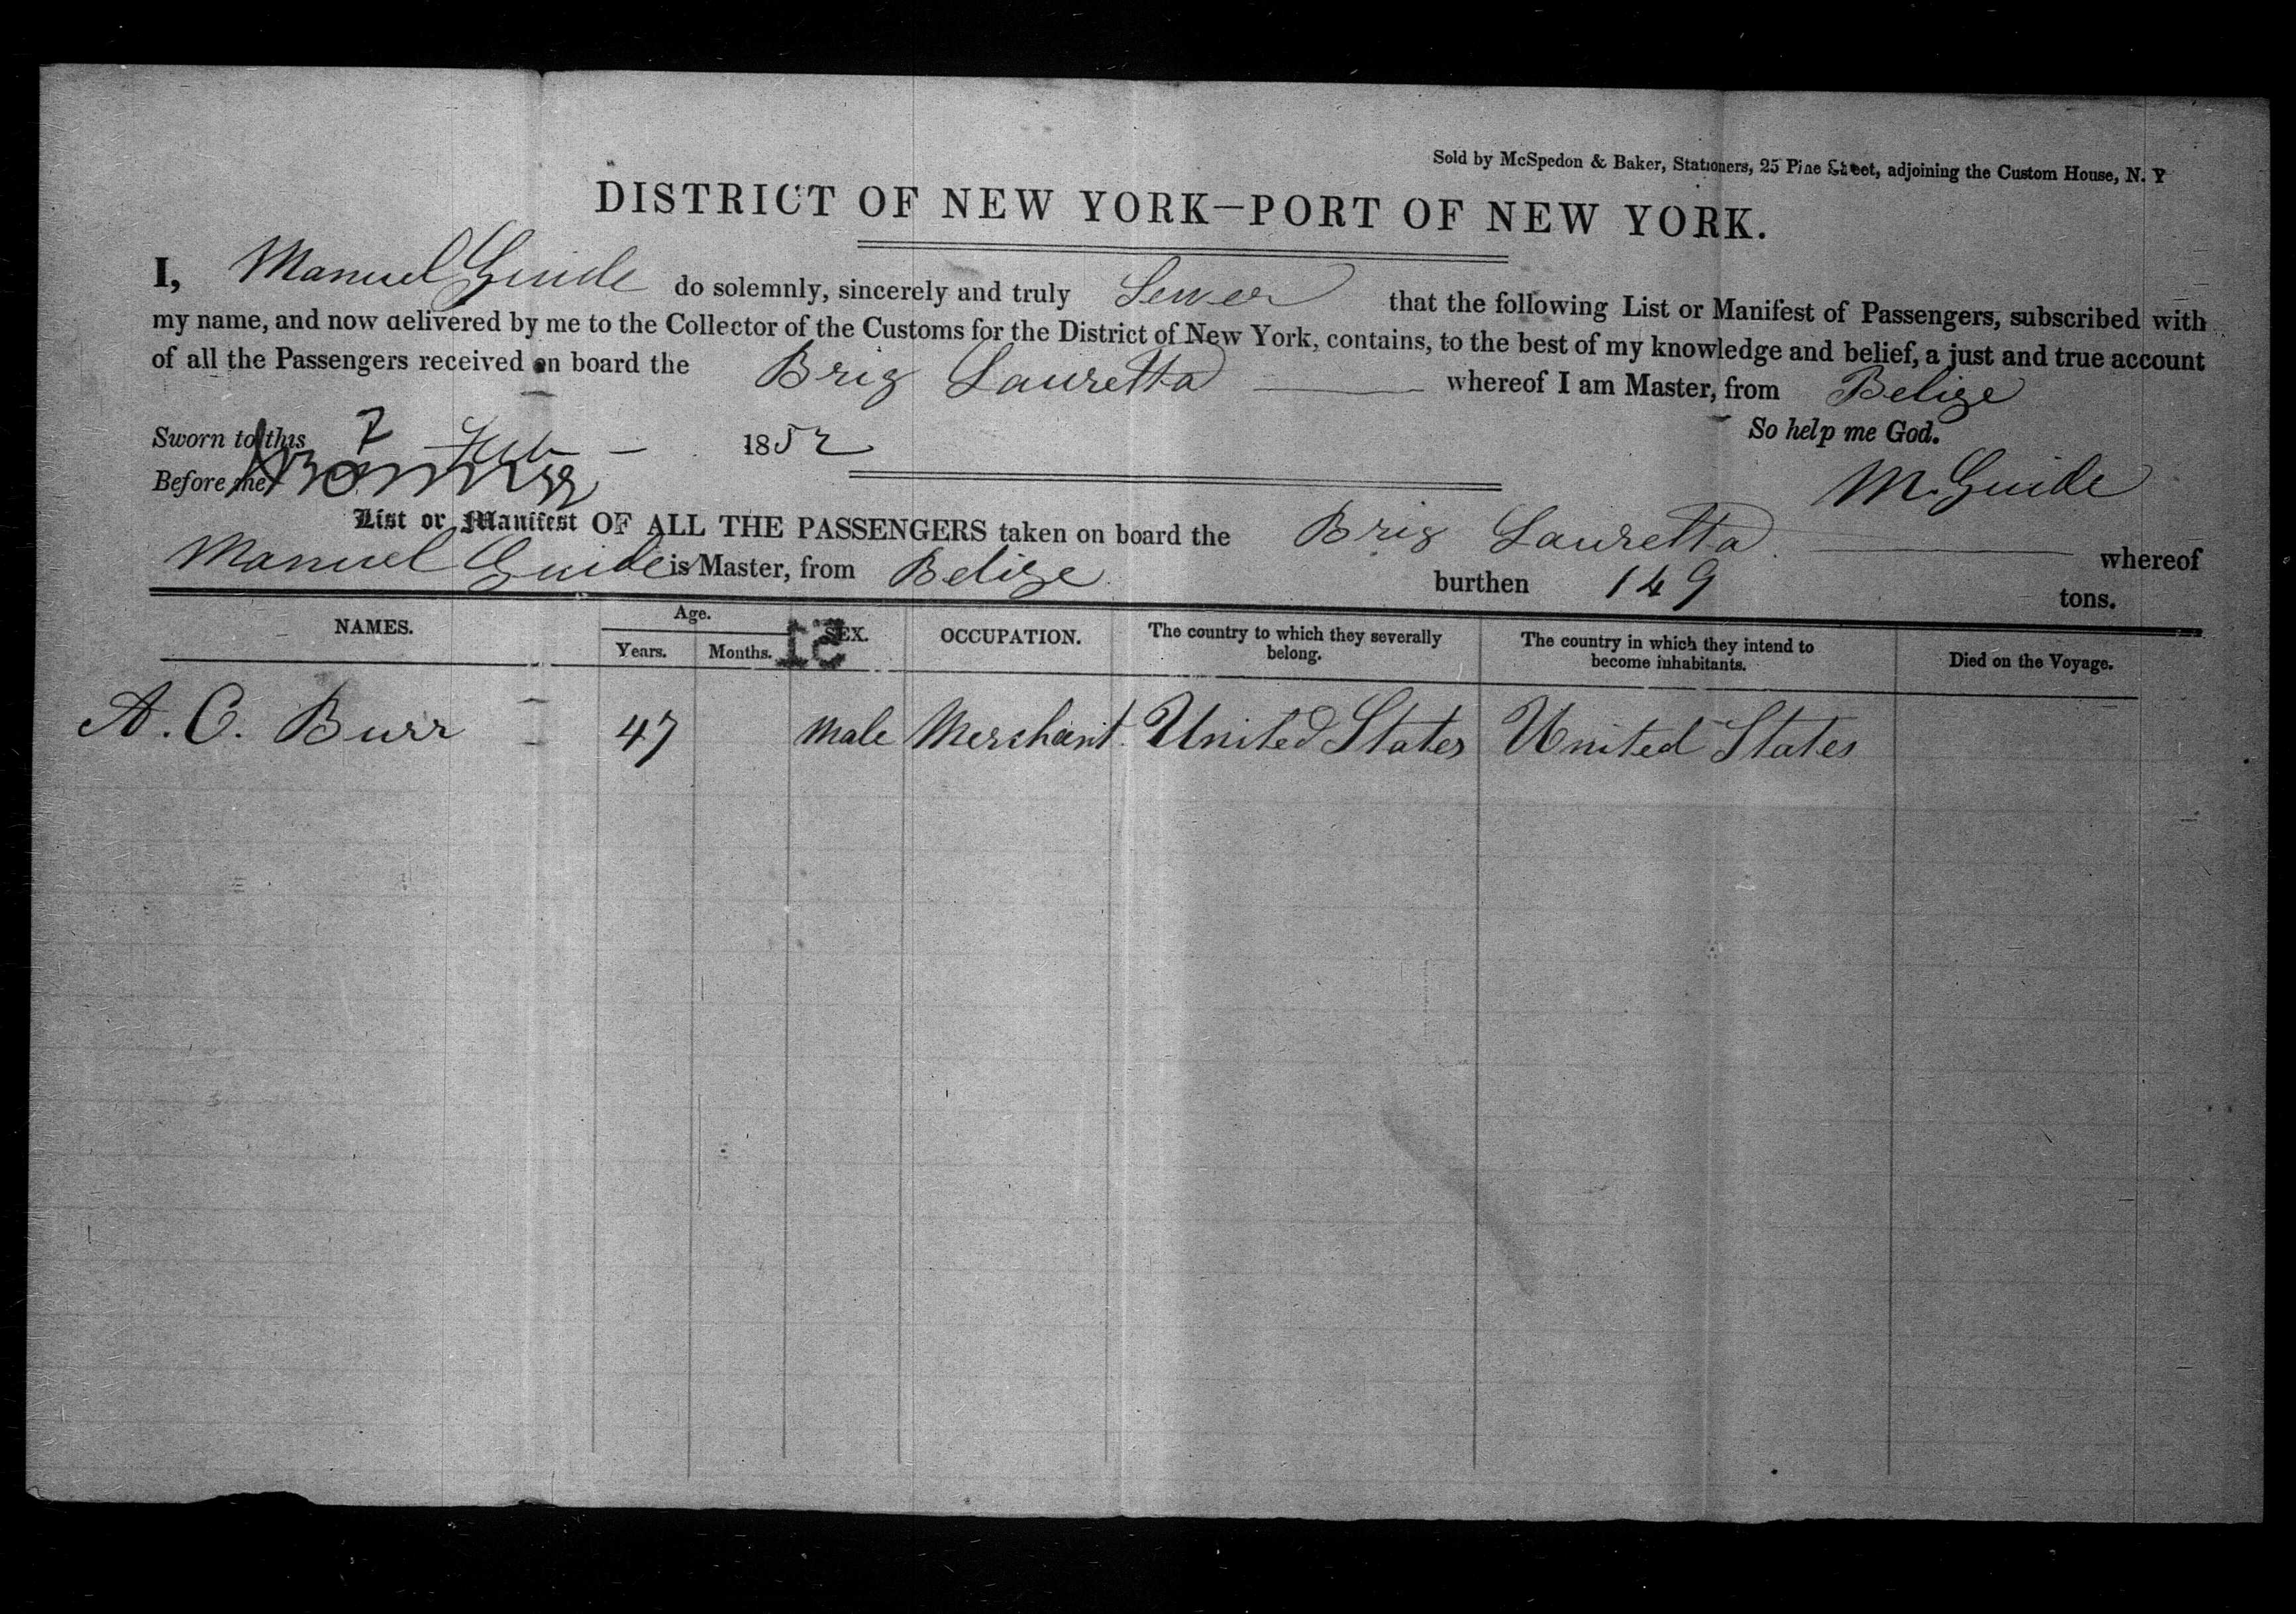 Sold by McSpedon & Baker, Stationers, 25 Pine Street, adjoining the Custom House, N. Y
DISTRICT OF NEW YORK—PORT OF NEW YORK.
I, Manuel Guide do solemnly, sincerely and truly Swear that the following List or Manifest of Passengers, subscribed with
my name, and now delivered by me to the Collector of the Customs for the District of New York, contains, to the best of my knowledge and belief, a just and true account
of all the Passengers received on board the Brig Lauretta whereof I am Master, from Belize
So help me God.
Sworn to this 7 Feb 1852
Before me
M. Guide
List or Manifest OF ALL THE PASSENGERS taken on board the Brig Lauretta whereof
Manuel Guide is Master, from Belize burthen 149 tons.
NAMES. Age. Years. Months. SEX. OCCUPATION. The country to which they severally belong. The country in which they intend to become inhabitants. Died on the Voyage.
51
A. C. Burr 47 Male Merchant United States United States